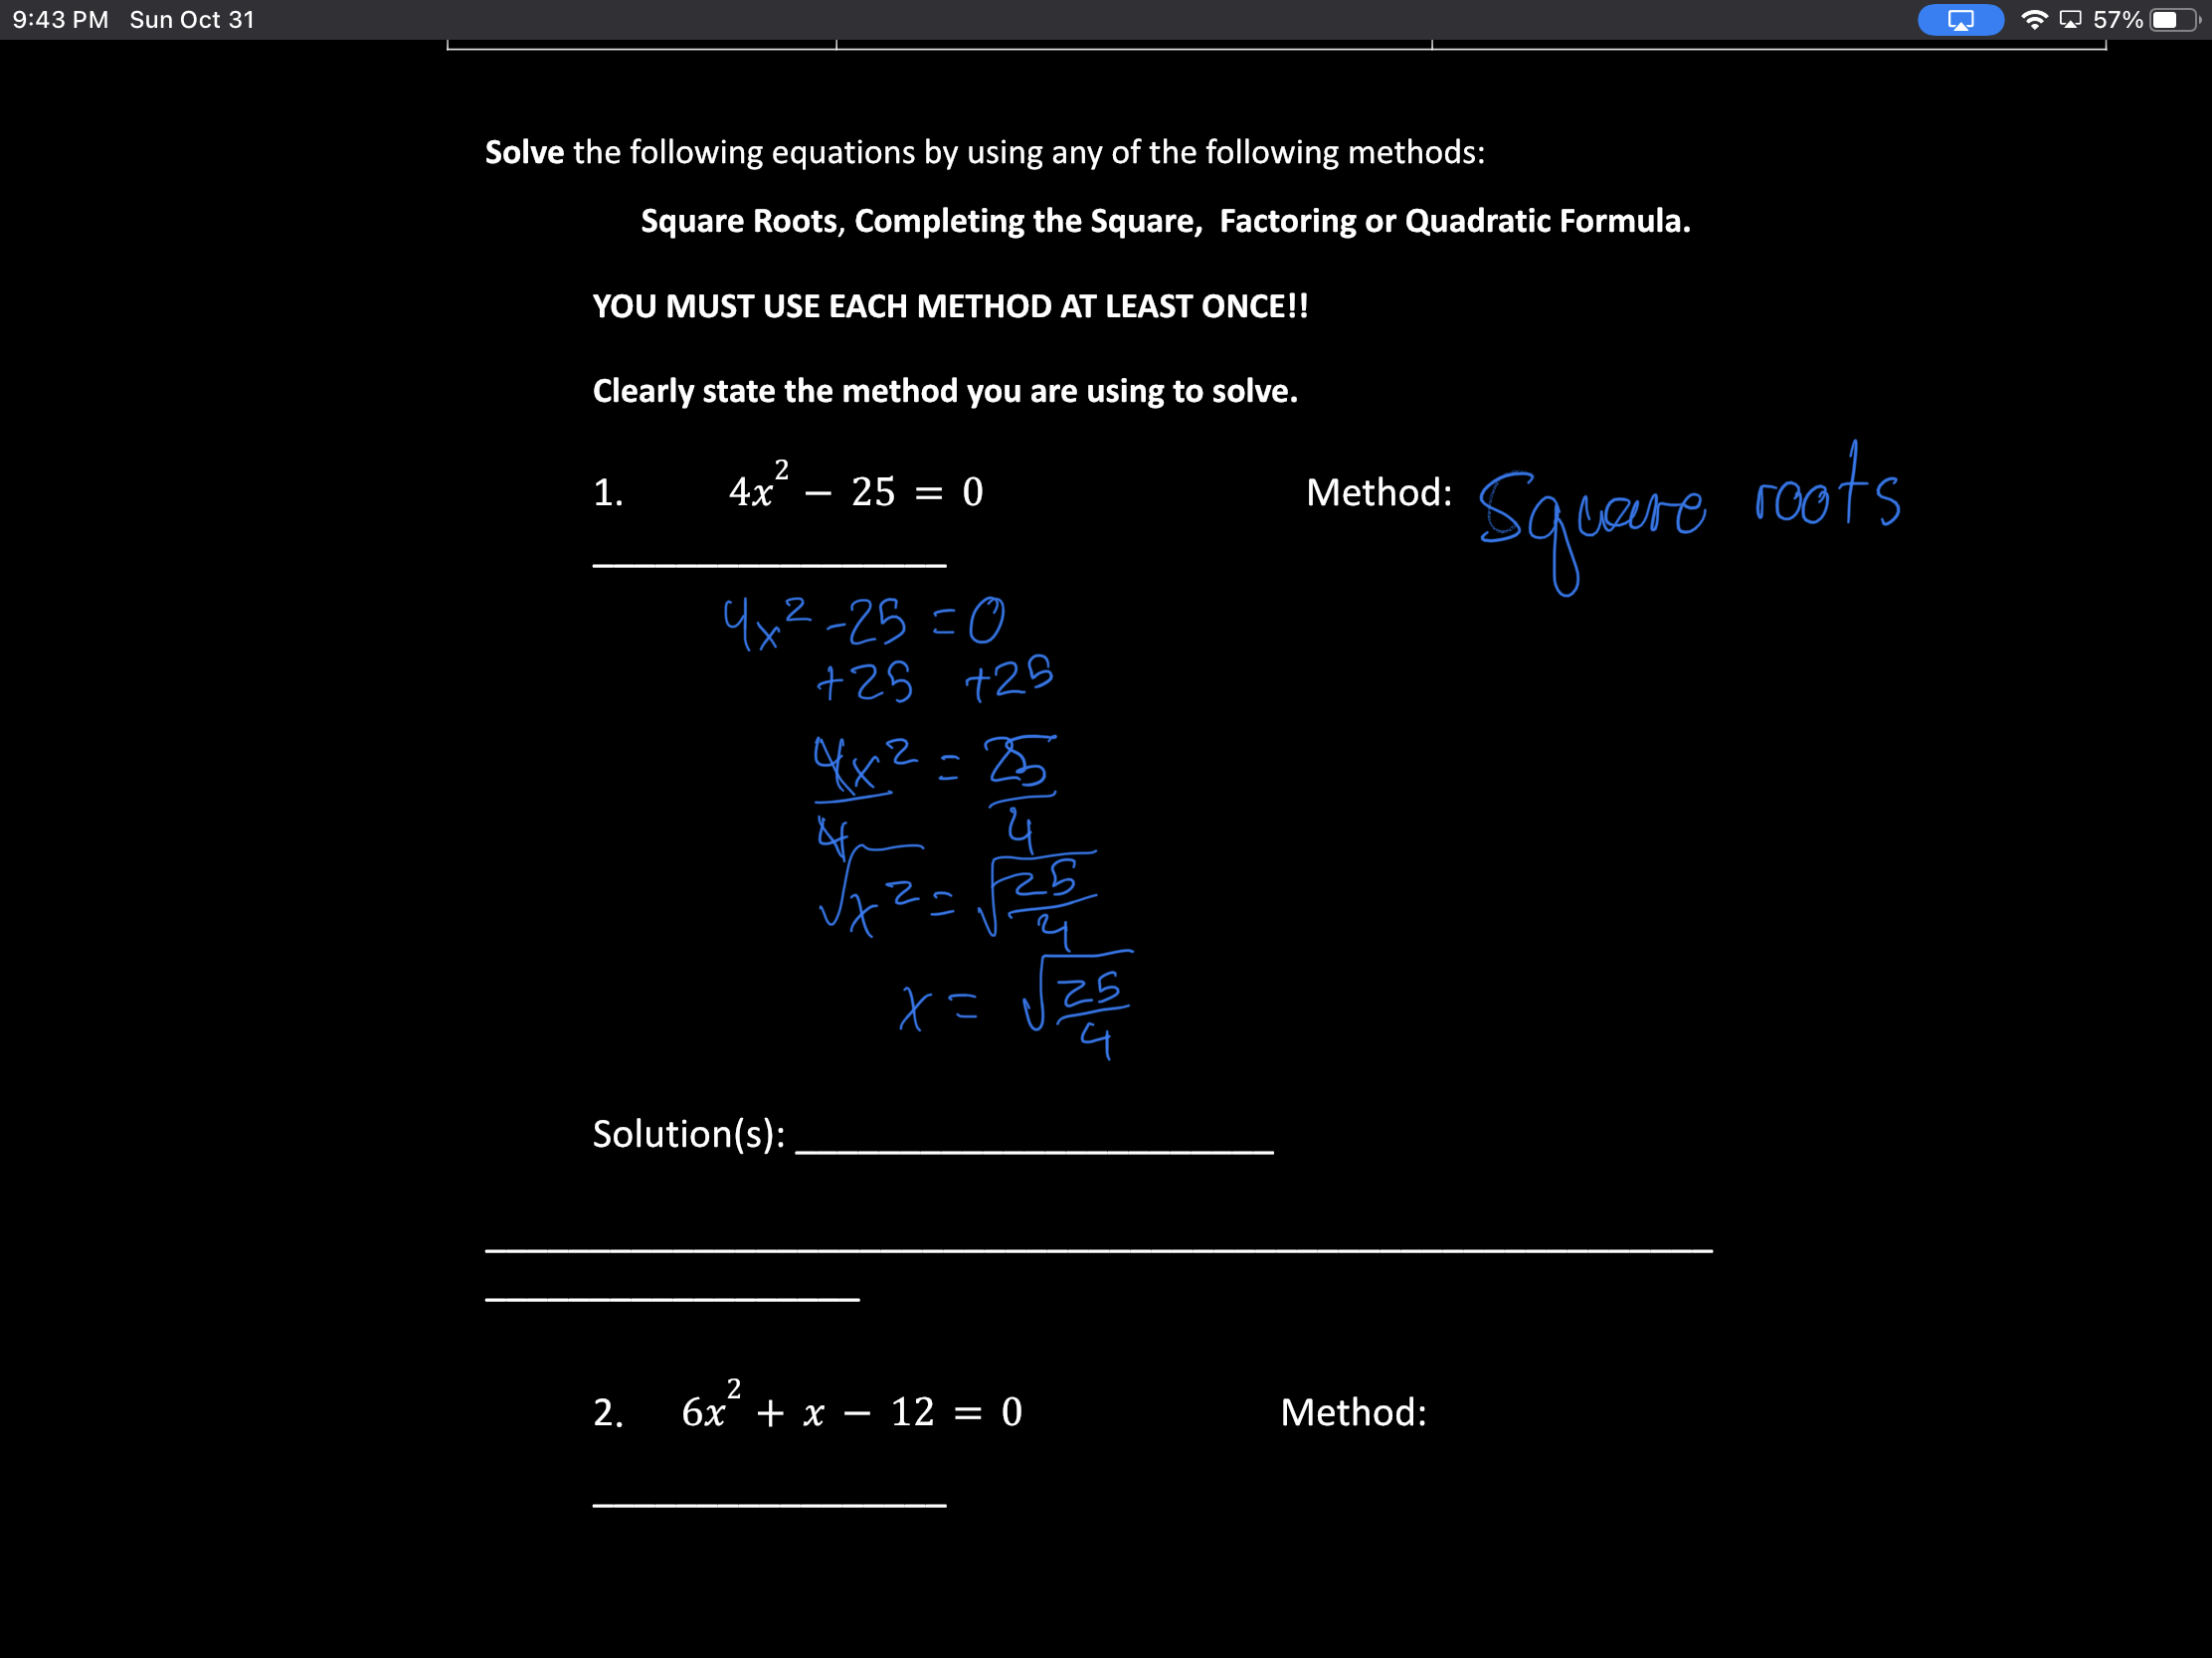 9:43 PM Sun Oct 31 57%
Solve the following equations by using any of the following methods:
Square Roots, Completing the Square, Factoring or Quadratic Formula.
YOU MUST USE EACH METHOD AT LEAST ONCE!!
Clearly state the method you are using to solve.
1. 4x² − 25 = 0 Method: Square roots
4x² - 25 = 0
+25 +25
4x² = 25
4 4
√x² = √25/4
x = √25/4
Solution(s):
2. 6x² + x − 12 = 0 Method: